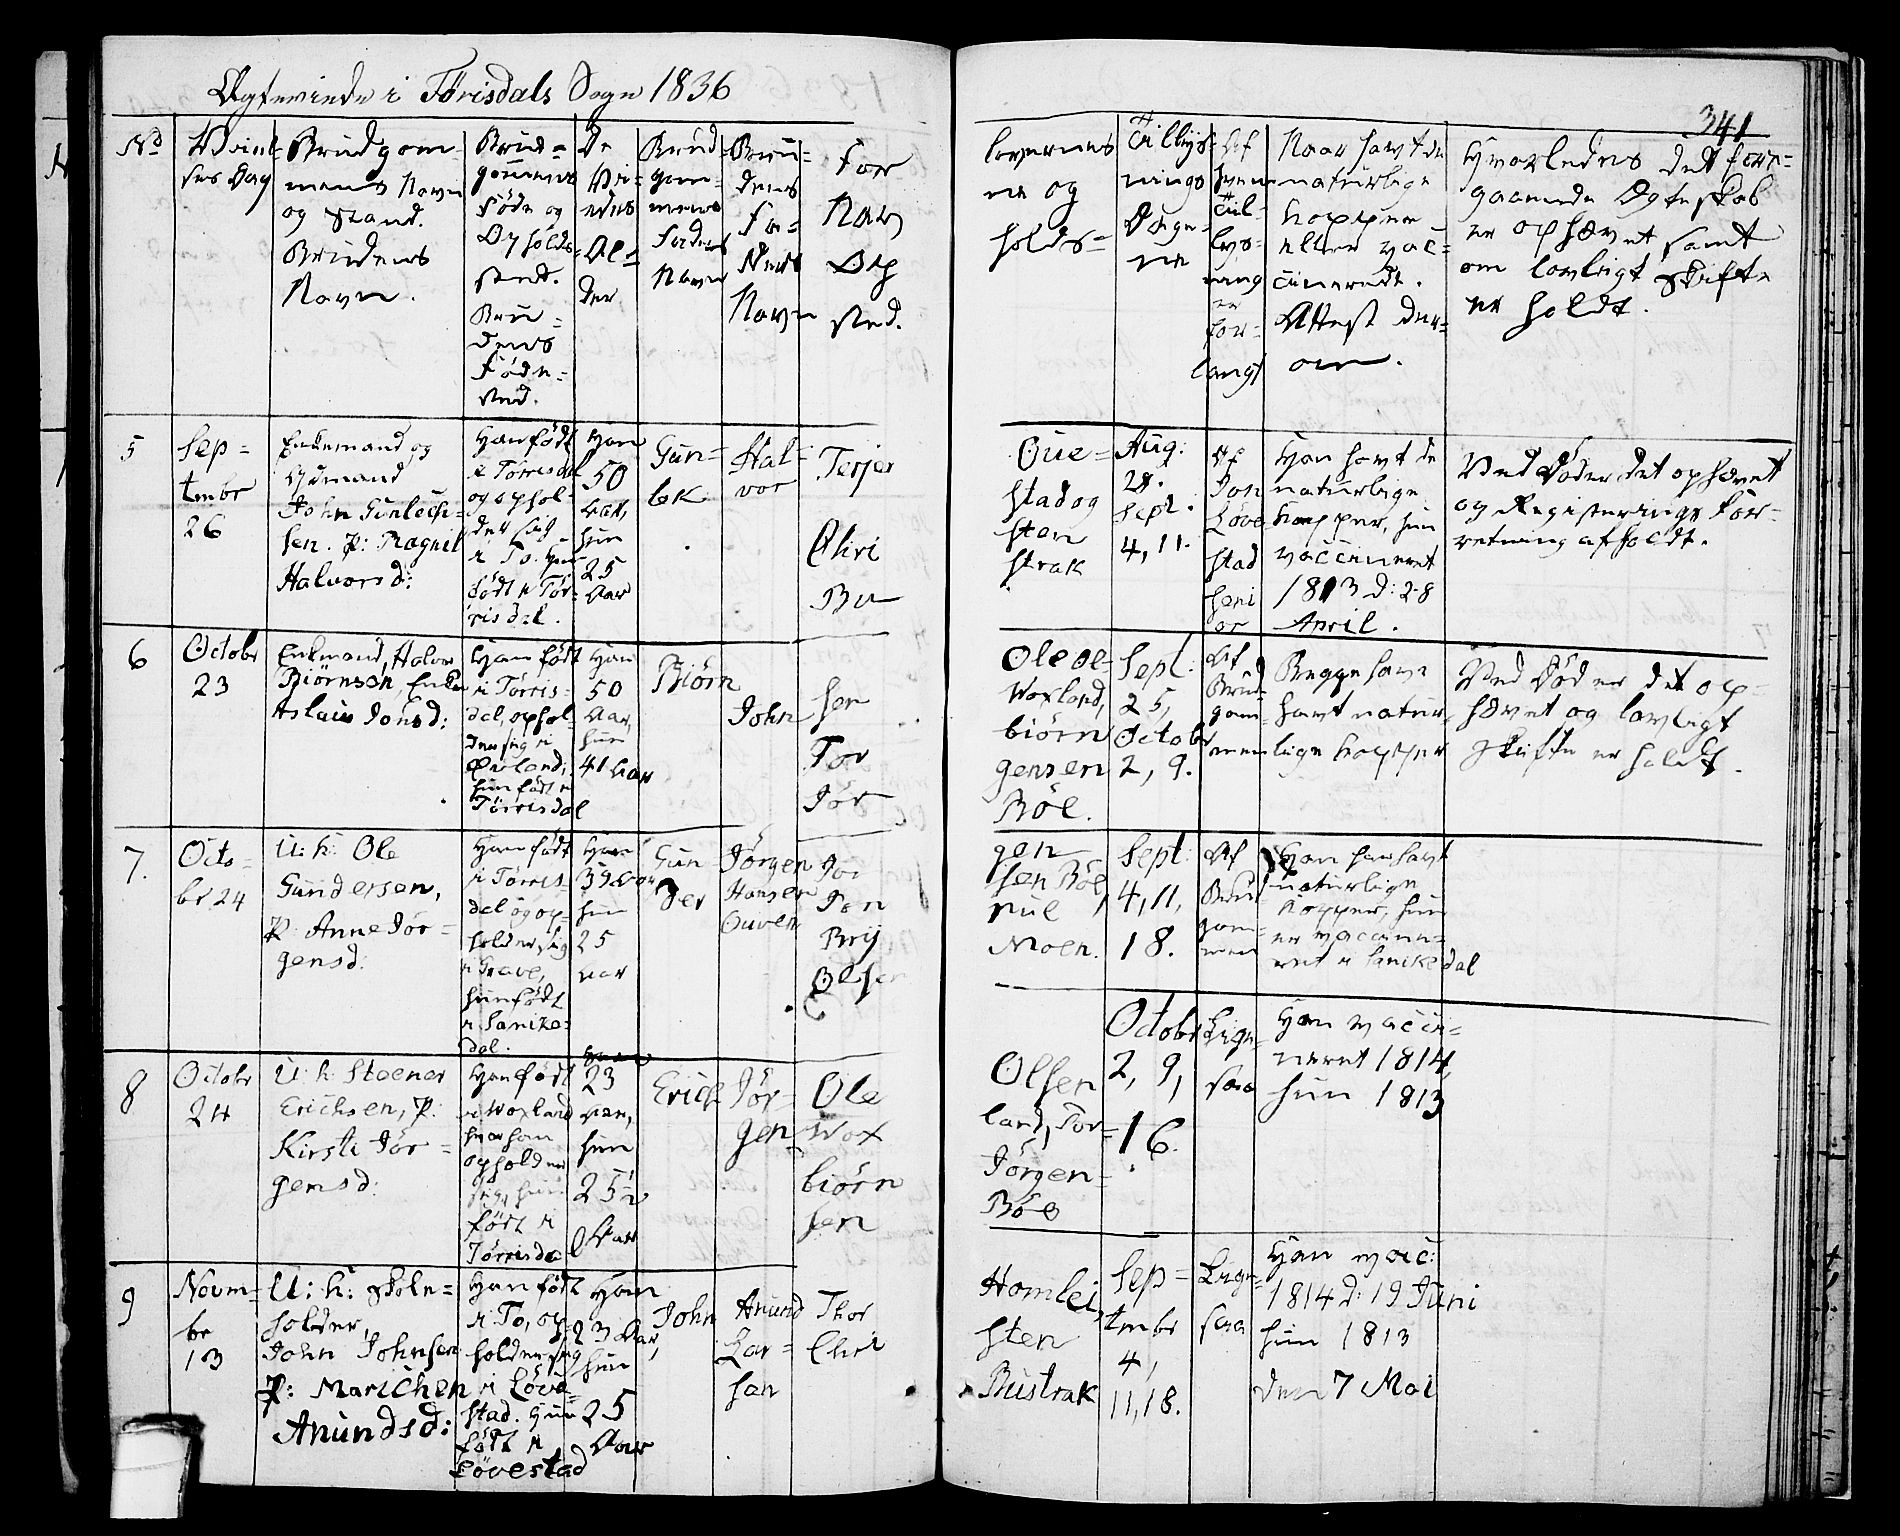 Ægteviede i Tørisdals Sogn 1836
341
No
Vviel-
ses Dag
Brudgom-
mens Navn
og Stand.
Brudens
Navn.
Brud-
gommens
Føde og
Opholds-
sted.
Bru-
dens
Føde-
sted.
De
Vvi-
edes
Al-
der
Brud-
gom-
mens
Faders
Navn
Bru-
dens
Fa-
ders
Navn
For
Nav
Op
sted.
lovernes
ne og
holds-
Tillys-
nings
Dage-
ne
Af
hvem
Til-
lys-
ning
er
for-
langt
Naar havt de
naturlige
Kopper
eller vac-
cinerede.
Attest der-
om.
Hvorledes det fore-
gaaende Ægteskab
er ophævet samt
om lovligt Skifte
er holdt.
5
Sep-
tmbr
26
Enkemand og
Husmand
John Gunlech-
sen. P: Ragnil
Halvorsd:
Han født
i Tørrisdal
og ophol-
der sig
i To. Hun
født i Tør-
risdal.
Han
50
Aar,
hun
25
Aar
Gun-
lek
Hal-
vor
Terjer
Chri
Bu
Oue-
stad og
sten
strak
Aug:
28.
Sept.
4, 11.
Af
Jon
Løve
stad
Seni
or
Han havt de
naturlige
Kopper, hun
vaccineret
1813 d: 28
April.
Ved Døden det ophævet
og Registerings For-
retning afholdt.
6
Octobr
23
Enkmand, Halvor
Biørnsen, Enke
Aslaug Jonsd:
Han født
i Tørris-
dal, ophol-
der sig i
Øvland;
hun født i
Tørrisdal
Han
50
Aar,
hun
41 Aar
Biørn
John
sen
Tor
Jør
Ole Ol-
Woxland,
biørn
gensen
Böl.
Sept:
25,
Octobr
2, 9.
Af
Brud-
gom-
men
Begge have
havt natur-
lige Kopper
Ved Død er det op-
hævet og lovligt
Skifte er holdt.
7.
Octo-
br 24
U: k: Ole
Gundersen,
P: Anne Jør-
gensd:
Han født
i Tørris-
dal og op-
holder sig
i Grave,
hun født
i Sanike-
dal.
Han
39 Aar
hun
25
Aar
Gun
der
Jørgen
Hansen
Ouven
Jør
Ton
Brij
Olsen
gen
sen Böl,
nul
Moen.
Sept:
4, 11,
18.
Af
Brud
gom-
men
Han har havt
naturlige
Kopper, hun
er vaccine-
ret i Sanikedal
8
Octobr
24
U: k: Stoener
Erichsen, P:
Kirsti Jør-
gensd:
Han født
i Woxland
hvor han
opholder
sig, hun
født i
Tørrisdal
Han
23
Aar,
hun
25½
Aar
Erich
Jør-
gen
Ole
Wox
biörn
sen
Olsen
land, Tor-
Jörgen-
Böl
Octobr
2, 9,
16.
Lige-
saa
Han vacci-
neret 1814,
hun 1813
9
Novm-
br
13
U: k: Skole-
holder,
John Johnsen
P: Marichen
Anundsd:
Han født
i To, op-
holder sig
i Löve-
stad. Hun
født i
Lövestad
Han
23 Aar,
hun
25
Aar
John
Anund
Lar-
sen
Thor
Chri
Homlei,
sten
Bustrak
Sep-
tmbr
4,
11, 18.
Lige-
saa
Han vac:
1814 d: 19 Juni
hun 1813
den 7 Mai